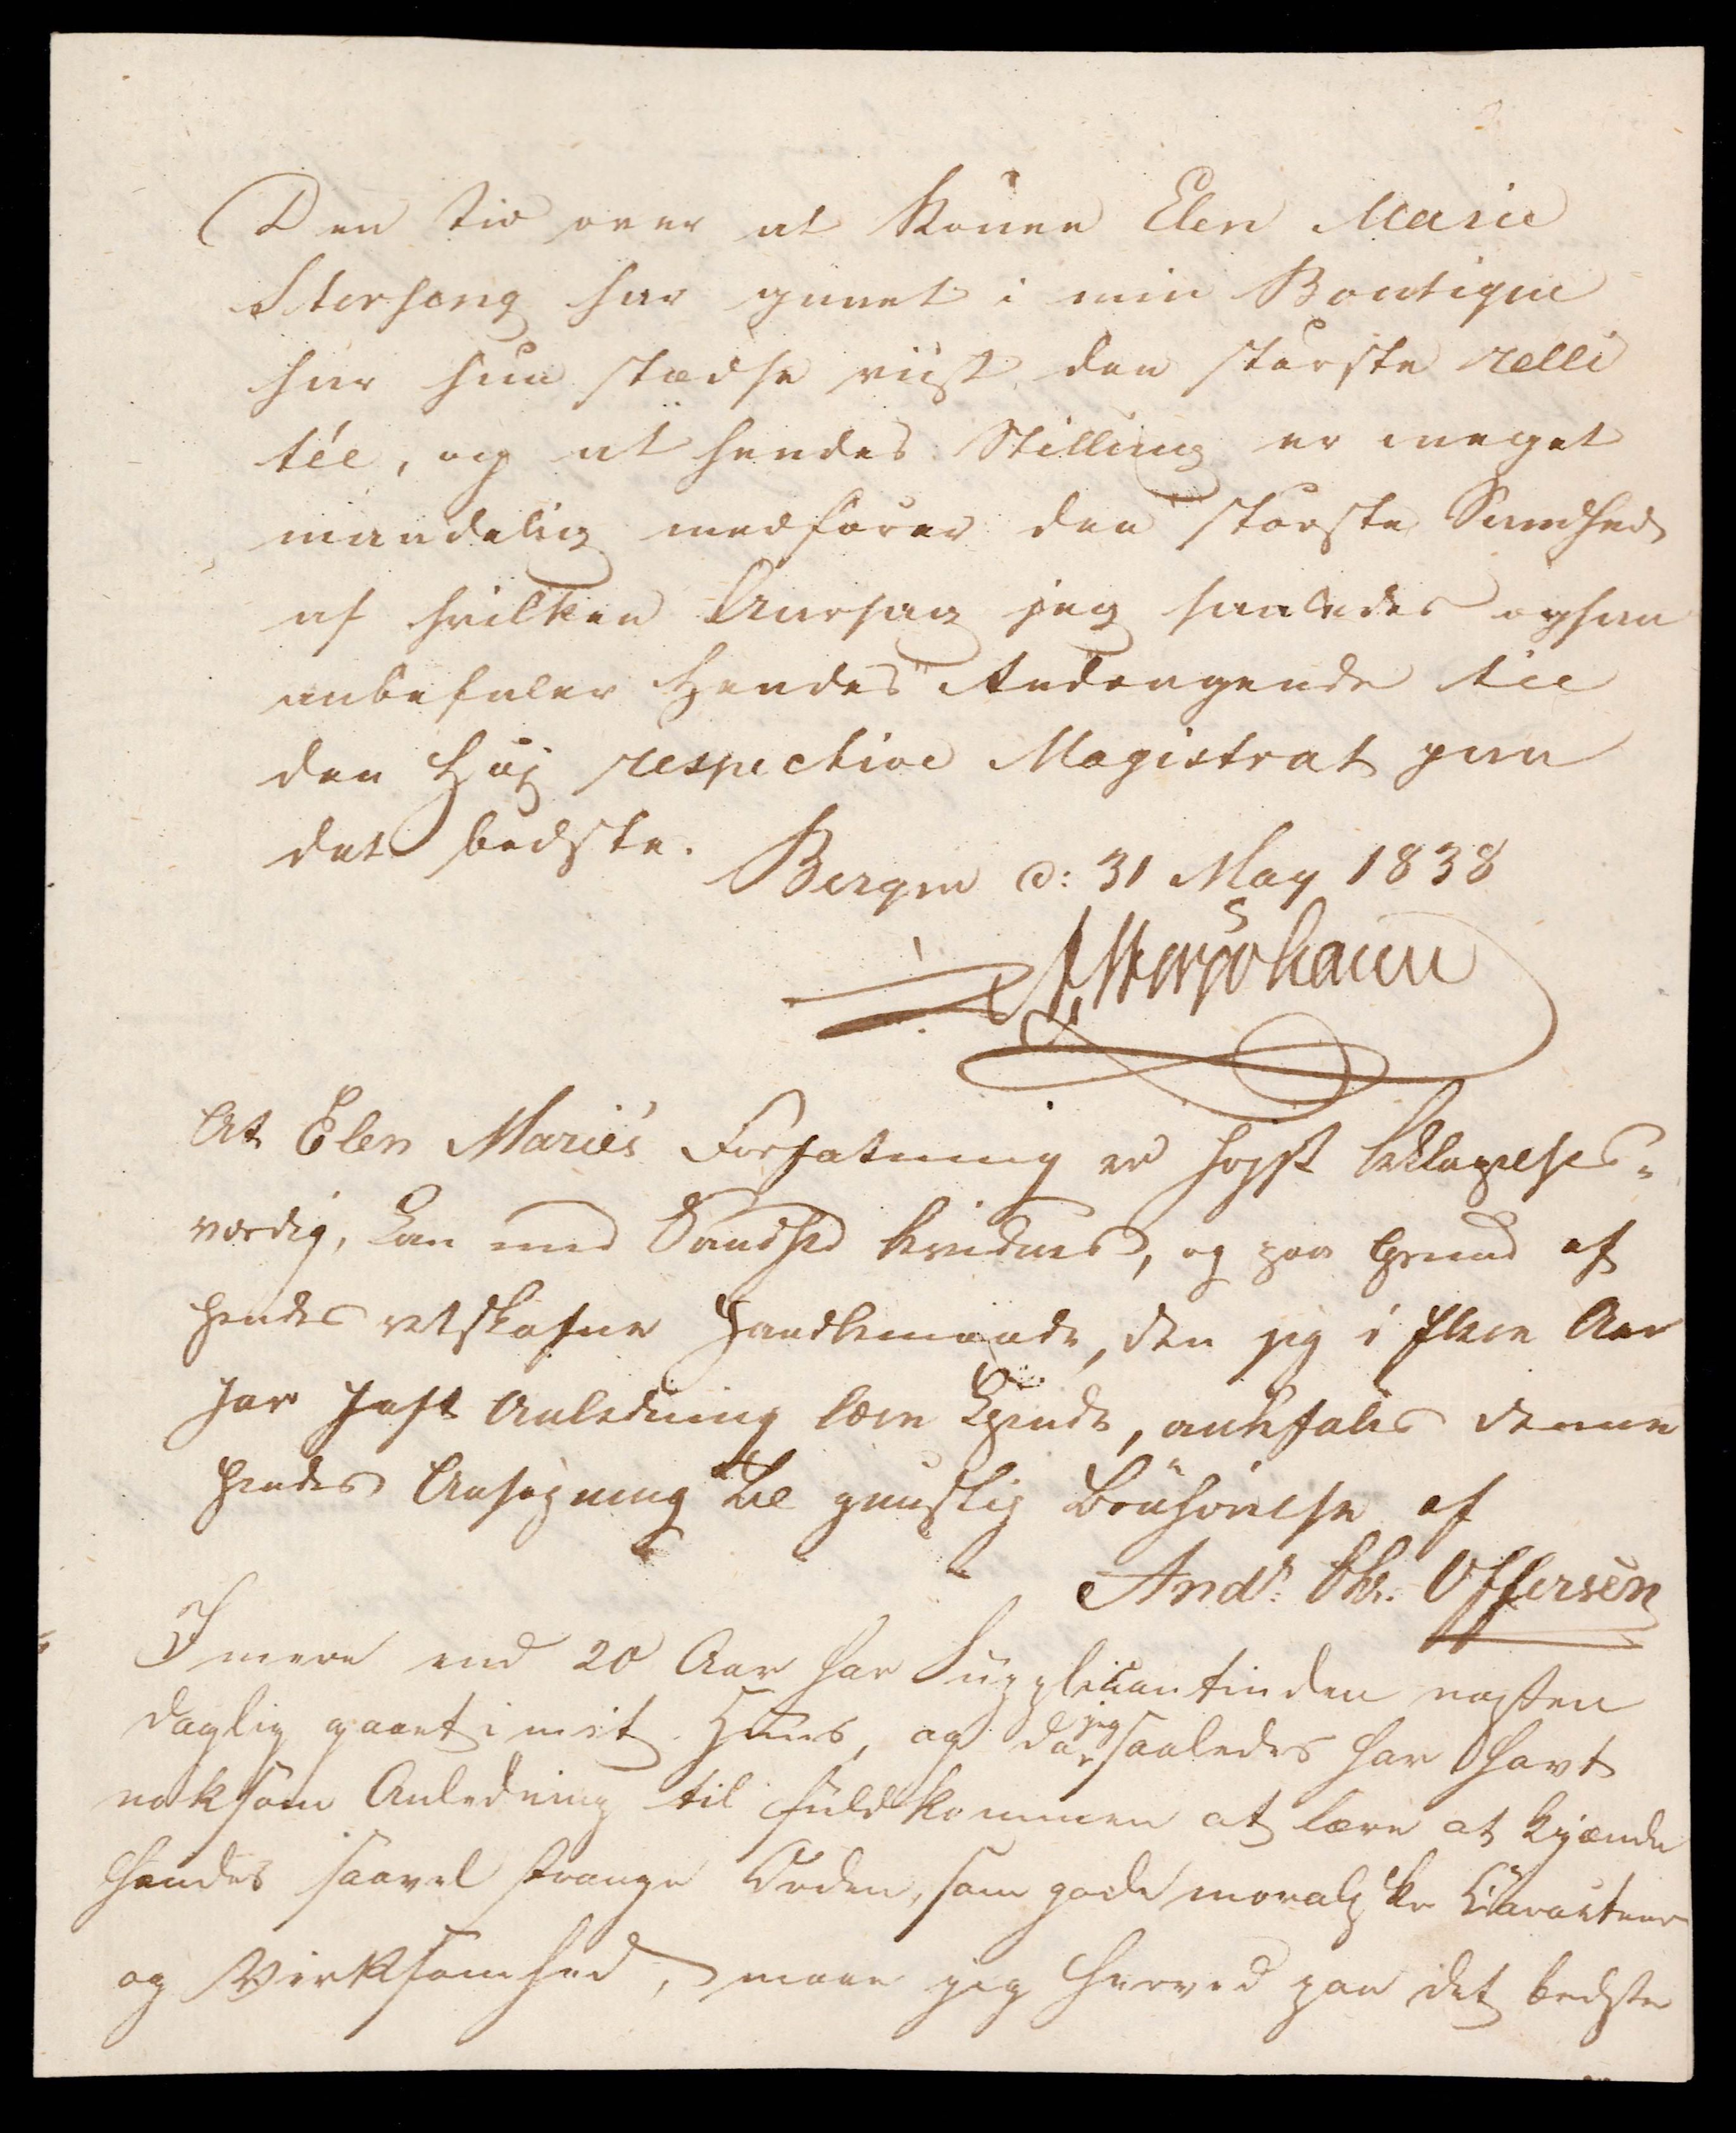 Den tid over at Konen Elen Marie
Storseng har gaaet i min Boutique
har hun stædse viist den største relli
tée, og at hendes Stilling er meget
maadelig medfører den største Sandhed
af hvilken Aarsag jeg saaledes ogsaa
anbefaler Hendes Andragende til
den Høj respective Magistrat paa
det bedste.
Bergen d: 31 May 1838
At Elen Maries Forfatning er høyst beklagelses-
værdig, kan med Sandhed bevidnes, og paa Grund af
hendes retskafne Handlemaade, den jeg i flere Aar
har haft Anledning lære kjende, anbefales denne
hendes Ansøgning til gunstig Bønhørelse af
Andr. Chr. Offersen
I mere end 20 Aar har Supplicantinden næsten
daglig gaaet i mit Huus, og da jeg saaledes har havt
noksom Anledning til fuldkommen at lære at kjænde
hendes saavel trange Kaar, som gode moralske Caracteer
og Virksomhed, maae jeg herved paa det bedste